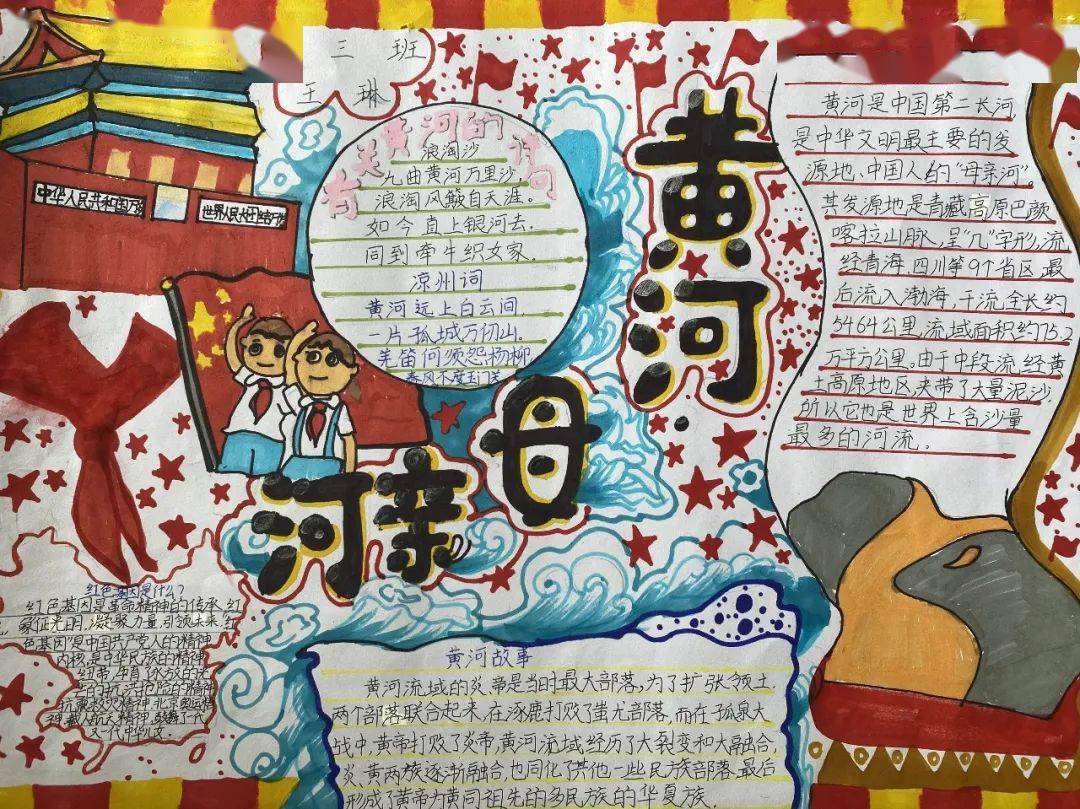 三 班
王 琳
中华人民共和国万岁
世界人民大团结万岁
有关黄河的诗词
浪淘沙
九曲黄河万里沙
浪淘风簸自天涯.
如今直上银河去.
同到牵牛织女家.
凉州词
黄河远上白云间.
一片孤城万仞山.
羌笛何须怨杨柳
春风不度玉门关
黄河
母亲河
黄河是中国第二长河
是中华文明最主要的发
源地、中国人的"母亲河"。
其发源地是青藏高原巴颜
喀拉山脉,呈"几"字形,流
经青海.四川等9个省区,最
后流入渤海,干流全长约
5464公里,流域面积约75.2
万平方公里。由于中段流经黄
土高原地区,夹带了大量泥沙.
所以它也是世界上含沙量
最多的河流.
红色基因是什么?
红色基因是革命精神的传承,红
象征光明,凝聚力量,引领未来.红
色基因是中国共产党人的精神
内核,是中华民族的精神
纽带,孕育
抗震救灾精神,北京奥运精
神,载人航天精神,
又一代中华儿女.
黄河故事
黄河流域的炎帝是当时最大部落,为了扩张领土.
两个部落联合起来,在逐鹿打败了蚩尤部落,而在孤泉大
战中,黄帝打败了炎帝,黄河流域经历了大裂变和大融合,
炎、黄两族逐渐融合,也同化了其他一些民族部落.最后
形成了黄帝为黄同祖先的多民族的华夏族.